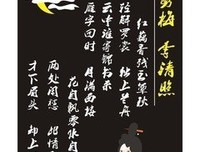 剪梅 李清照
红藕香残玉簟秋
轻解罗裳 独上兰舟
云中谁寄锦书来
雁字回时 月满西楼
花自飘零水自
两处闲愁 此情
才下眉头 却上